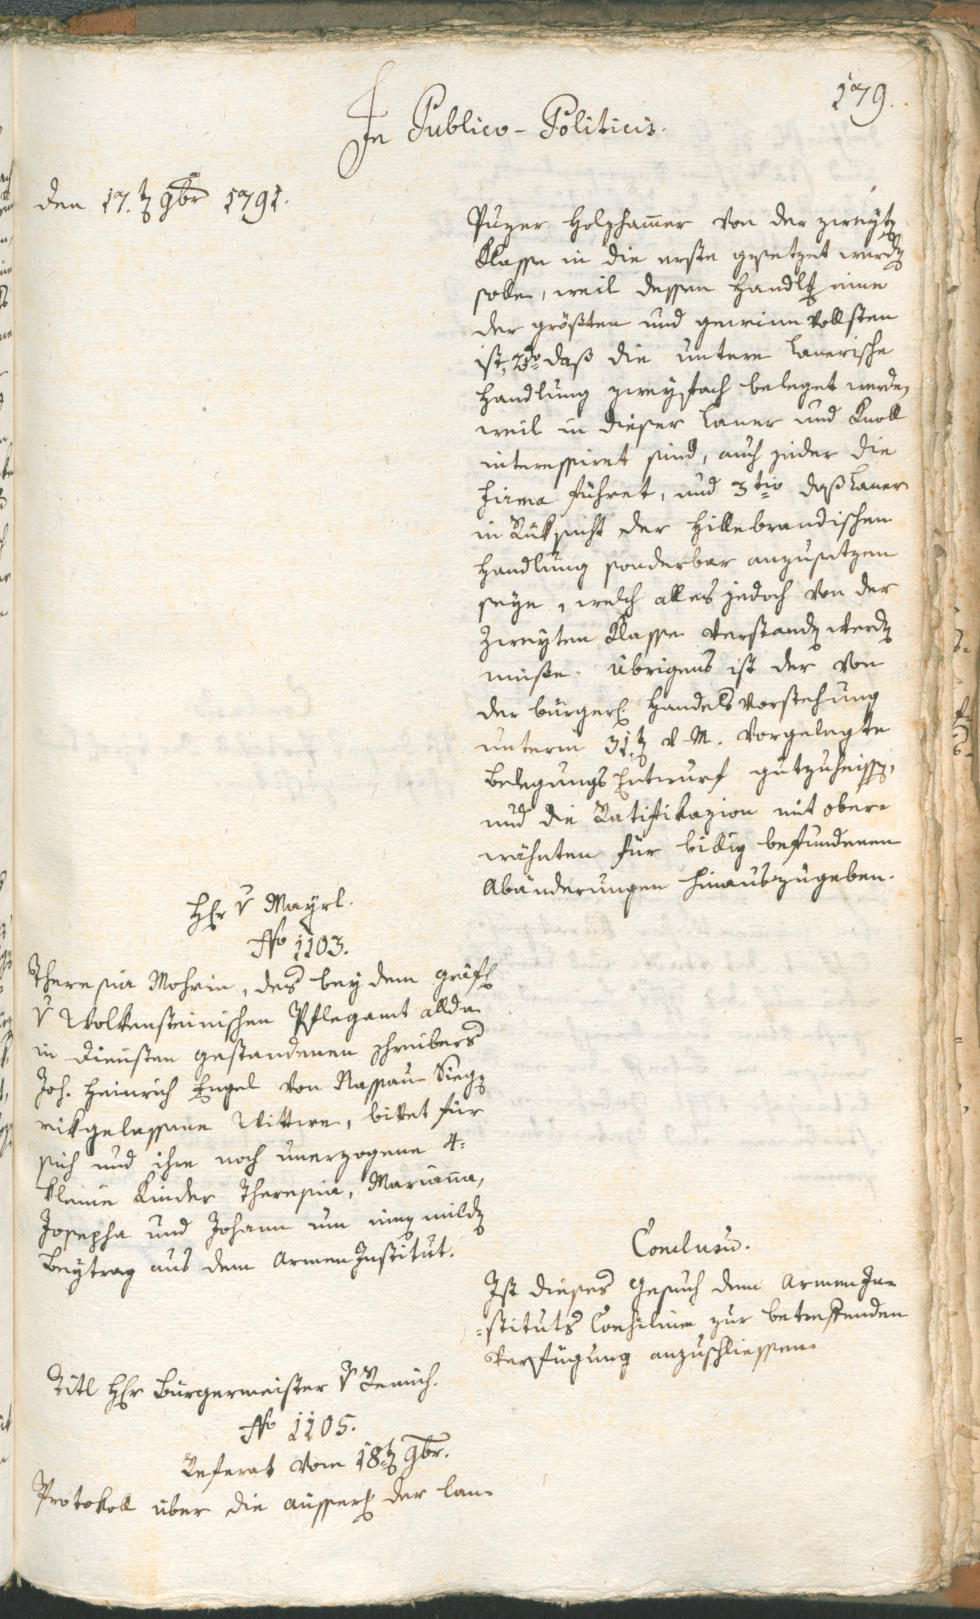 179.
In Publico-Politicis.
den 17.t 9br 1791.
Puzer Holzhamer von der zweyt
Klasse in die erste gesetzet werd
solle, weil dessen Handlg eine
der größten und gewinnvollsten
ist, 2do daß die untere Lanerische
Handlung zweyfach beleget werde,
weil in dieser Laner und Knoll
interessiret sind, auch jeder die
Firma führet, und 3tio daß Laner
in Rüksicht der Hillebrandischen
Handlung sonderbar anzusetzen
seye, welch alles jedoch von der
Zweyten Klasse verstand werd
müsse. Übrigens ist der von
der bürgerl Handels Vorstehung
unterm 31.t v. M. vorgelegte
Belegungs Entwurf gutzuheissen,
und die Ratifikazion mit ober-
wähnten für billig befundenen
Abänderungen hinauszugeben.
Hr v Mayrl.
No 1103.
Theresia Mohrin, des bey dem gräfl
v Wolkensteinischen Pflegamt allda
in Diensten gestandenen Schreibers
Joh. Heinrich Engel von Nassau Sieg
rükgelassene Wittwe, bittet für
sich und ihre noch unerzogene 4.
kleine Kinder Theresia, Mariana,
Josepha und Johann um einen mild
Beytrag aus dem Armen Institut.
Conclusu.
Ist dieses Gesuch dem Armen In-
=stituts Consilium zur betreffenden
Verfügung anzuschliessen.
Titl Hr Bürgermeister v Remich.
No 1105.
Referat vom 18.t 9br.
Protokoll über die äusserl der Lan-